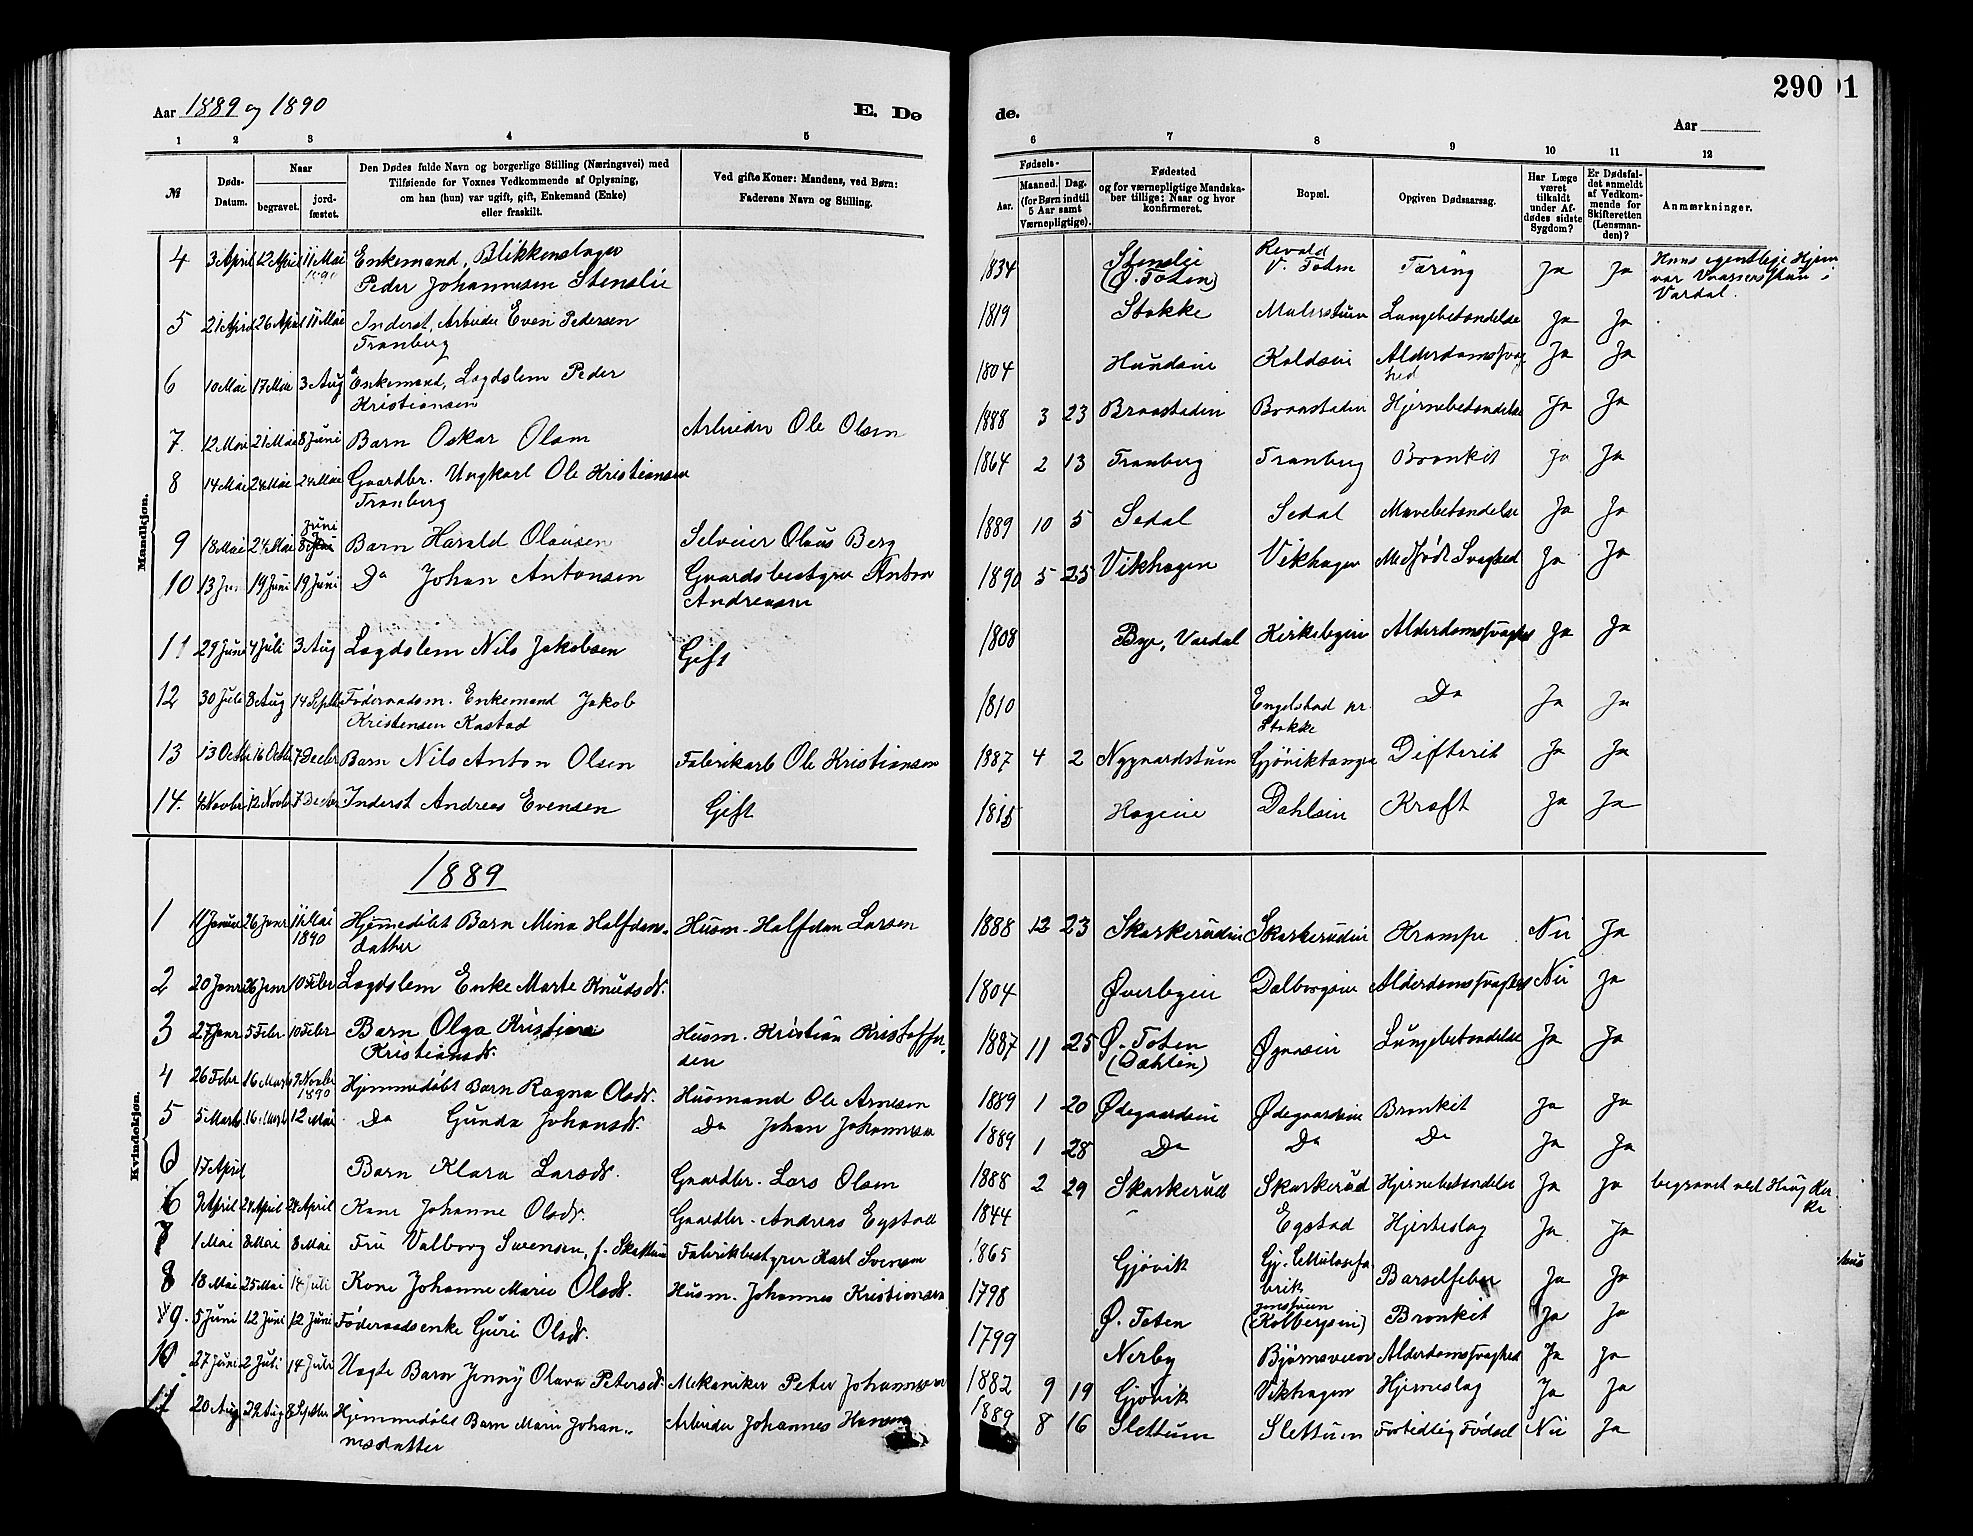 290 91
Aar 1889 og 1890
E. Dø
de.
Aar
1 2 3 4 5
6 7 8 9 10 11 12
№
Døds-Datum.
Naar
begravet.
jordfæstet.
Den Dødes fulde Navn og borgerlige Stilling (Næringsvei) med
Tilføiende for Voxnes Vedkommende af Oplysning,
om han (hun) var ugift, gift, Enkemand (Enke)
eller fraskilt.
Ved gifte Koner: Mandens, ved Børn:
Faderens Navn og Stilling.
Fødsels-
Aar.
Maaned. Dag.
(for Børn indtil
5 Aar samt
Værnepligtige).
Fødested
og for værnepligtige Mandska-
ber tillige: Naar og hvor
konfirmeret.
Bopæl.
Opgiven Dødsaarsag.
Har Læge
været
tilkaldt
under Af-
dødes sidste
Sygdom?
Er Dødsfal-
det anmeldt
af Vedkom-
mende for
Skifteretten
(Lensman-
den)?
Anmærkninger.
Mandkjøn.
4 3 April 12 April 11 Mai 1890 Enkemand, Blikkenslager
Peder Johannesen Stenslie 1834 Stenslie (Ø. Toten) V. Toten Tæring Ja Ja Hans egentlige Hjem
var i
Vardal.
5 21 April 26 April 11 Mai Inderst, Arbeider Even Pedersen
Tranberg 1819 Stokke Lungebetændelse Ja Ja
6 10 Mai 17 Mai 3 Aug Enkemand, Lægdslem Peder
Kristiansen 1804 Hundseie Koldseie Alderdomssvaghed Ja Ja
7 12 Mai 21 Mai 8 Juni Barn Oskar Olsen Arbeider Ole Olsen 1888 3 23 Braastadeie Braastadeie Hjernebetændelse Ja Ja
8 14 Mai 24 Mai 24 Mai Gaardbr. Ungkarl Ole Kristiansen
Tranberg 1864 2 13 Tranberg Tranberg Bronkit Ja Ja
9 18 Mai 24 Mai 8 Juni Barn Harald Olausen Selveier Olaus Berg 1889 10 5 Sedal Sedal Mavebetændelse Ja Ja
10 13 Ju. 19 Juni 19 Juni Do Johan Antonsen Gaardsbestyrer Anton
Andreasen 1890 5 25 Vikhagen Vikhagen Medfødt Svaghed Ja Ja
11 29 Juni 4 Juli 3 Aug Lægdslem Nils Jakobsen Gift 1808 Bye, Vardal Kirkebyeie Alderdomssvaghed Ja Ja
12 30 Juli 8 Aug 14 Septbr Føderaadsm. Enkemand Jakob
Kristensen Kastad 1810 Engelstad pr.
Stokke Do Ja Ja
13 13 Octbr 16 Octbr 7 Decbr Barn Nils Anton Olsen Fabrikarb Ole Kristiansen 1887 4 2 Nygaardstuen Gjøviktangen Difterit Ja Ja
14. 4 Novbr 12 Novbr 7 Decbr Inderst Andreas Evensen Gift 1815 Hageeie Dahlseie Kræft Ja Ja
1889
Kvindekjøn.
1 11 Januar 26 Janr 11 Mai 1890 Hjemmedøbt Barn Mina Halfdans-
datter Husm. Halfdan Larsen 1888 12 23 Skarkerudeie Skarkerudeie Krampe Nei Ja
2 20 Janr 26 Janr 10 Febr Lægdslem Enke Marte Knudsdr. 1804 Øverbyeie Dalborgseie Alderdomssvaghed Nei Ja
3 27 Janr 5 Febr 10 Febr Barn Olga Kristine
Kristiansdr. Husm. Kristian Kristoffer-
sen 1887 11 25 Ø. Toten
(Dæhlin) Lungebetændelse Ja Ja
4 26 Febr 16 Marts 9 Novbr 1890 Hjemmedøbt Barn Ragna Olsdr. Husmand Ole Arnesen 1889 1 20 Ødegaardseie Ødegaardseie Bronkit Ja Ja
5 5 Marts 16 Marts 12 Mai Do Gunda Johansdr. Do Johan Johannesen 1889 1 28 Do Do Do Ja Ja
6 17 April Barn Klara Larsdr. Gaardbr. Lars Olsen 1888 2 29 Skarkerud Skarkerud Hjernebetændelse Ja Ja begravet ved Haug Kir-
ke
6 9 April 24 April 24 April Kone Johanne Olsdr. Gaardbr. Andreas Egstad 1844 Egstad Hjerteslag Ja Ja
7 1 Mai 8 Mai 8 Mai Fru Valborg Svensen, f. Fabrikbestyrer Karl Svensen 1865 Gjøvik Gj. Cellulosefa-
brik Barselfeber Ja Ja
8 18 Mai 25 Mai 14 Juli Kone Johanne Marie Olsdr. Husm. Johannes Kristiansen 1798 Ø. Toten (Kolbergseie) Bronkit Ja Ja
9. 5 Juni 12 Juni 12 Juni Føderaadsenke Guri Olsdr. 1799 Nerby Bjørnsveen Alderdomssvaghed Ja Ja
10 27 Juni 2 Juli 14 Juli Uægte Barn Jenny Olava Petersdr. Mekaniker Peter Johannesen 1882 9 19 Gjøvik Vikhagen Hjerneslag Ja Ja
11 20 Aug 29 Aug 8 Septbr Hjemmedøbt Barn Marie Johan-
nesdatter Arbeider Johannes Hansen 1889 8 16 Slettum Slettum Fortidlig Fødsel Nei Ja